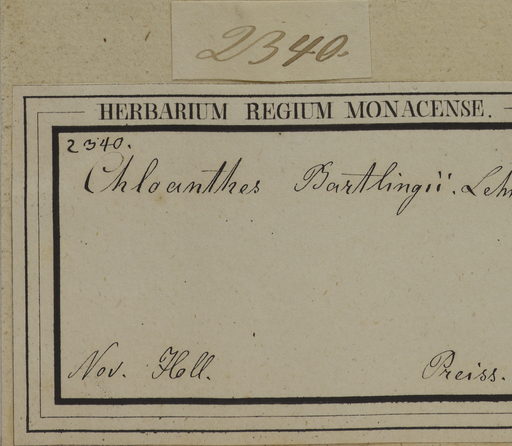 2340.
HERBARIUM REGIUM MONACENSE.
2340.
Chloanthes Bartlingii. Leh
Nov. Holl. Preiss.